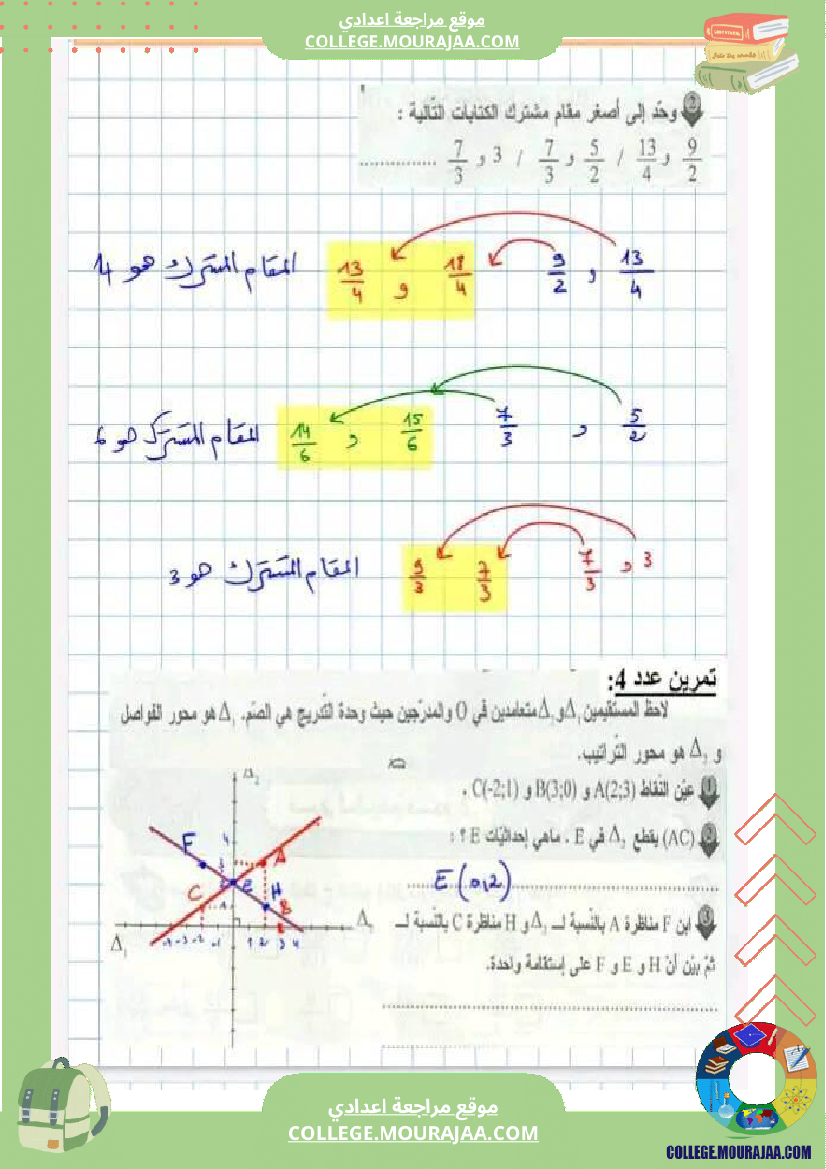 موقع مراجعة اعدادي
COLLEGE.MOURAJAA.COM
② وحّد إلى أصغر مقام مشترك الكتابات التّالية :
9/2 و 13/4 / 5/2 و 7/3 / 3 و 7/3 ................
13/4 , 9/2 18/4 و 13/4 المقام المشترك هو 4
5/2 , 7/3 15/6 , 14/6 المقام المشترك هو 6
3 , 7/3 7/3 9/3 المقام المشترك هو 3
تمرين عدد 4:
لاحظ المستقيمين Δ₁ و Δ₂ متعامدين في O والمدرّجين حيث وحدة التّدريج هي الصّم. Δ₁ هو محور الفواصل
و Δ₂ هو محور التّراتيب.
① عيّن النّقاط A(2;3) و B(3;0) و C(-2;1) .
② (AC) يقطع Δ₂ في E . ماهي إحداثيّات E ؟ :
E(0,2)
③ ابن F مناظرة A بالنّسبة لـ Δ₂ و H مناظرة C بالنّسبة لـ
ثمّ بيّن أنّ H و E و F على إستقامة واحدة.
Δ₂
F A
E
C H B
-4 -3 -2 -1 1 2 3 4
Δ₁
موقع مراجعة اعدادي
COLLEGE.MOURAJAA.COM
COLLEGE.MOURAJAA.COM